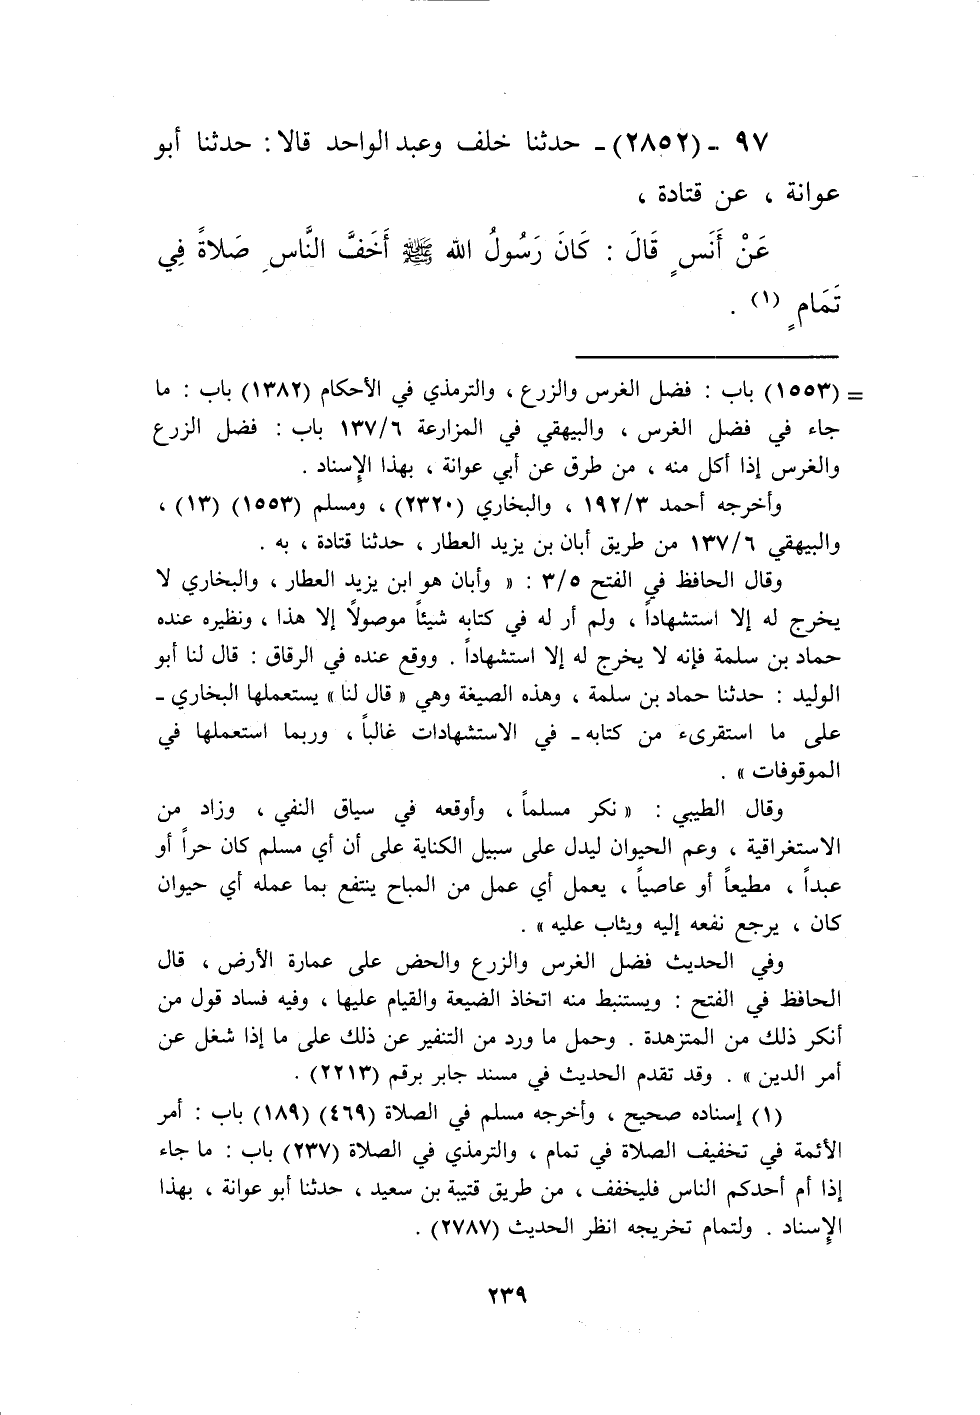 ٩٧ - (٢٨٥٢) - حدثنا خلف وعبد الواحد قالا : حدثنا أبو
عوانة ، عن قتادة ،
عَنْ أَنَسٍ قَالَ : كَانَ رَسُولُ الله ﷺ أَخَفَّ النَّاسِ صَلاةً فِي
تَمَامٍ (١) .
= (١٥٥٣) باب : فضل الغرس والزرع ، والترمذي في الأحكام (١٣٨٢) باب : ما
جاء في فضل الغرس ، والبيهقي في المزارعة ١٣٧/٦ باب : فضل الزرع
والغرس إذا أكل منه ، من طرق عن أبي عوانة ، بهذا الإسناد .
وأخرجه أحمد ١٩٢/٣ ، والبخاري (٢٣٢٠) ، ومسلم (١٥٥٣) (١٣) ،
والبيهقي ١٣٧/٦ من طريق أبان بن يزيد العطار ، حدثنا قتادة ، به .
وقال الحافظ في الفتح ٣/٥ : « وأبان هو ابن يزيد العطار ، والبخاري لا
يخرج له إلا استشهاداً ، ولم أر له في كتابه شيئاً موصولاً إلا هذا ، ونظيره عنده
حماد بن سلمة فإنه لا يخرج له إلا استشهاداً . ووقع عنده في الرقاق : قال لنا أبو
الوليد : حدثنا حماد بن سلمة ، وهذه الصيغة وهي « قال لنا » يستعملها البخاري -
على ما استقرىء من كتابه - في الاستشهادات غالباً ، وربما استعملها في
الموقوفات » .
وقال الطيبي : « نكر مسلماً ، وأوقعه في سياق النفي ، وزاد من
الاستغراقية ، وعم الحيوان ليدل على سبيل الكناية على أن أي مسلم كان حراً أو
عبداً ، مطيعاً أو عاصياً ، يعمل أي عمل من المباح ينتفع بما عمله أي حيوان
كان ، يرجع نفعه إليه ويثاب عليه » .
وفي الحديث فضل الغرس والزرع والحض على عمارة الأرض ، قال
الحافظ في الفتح : ويستنبط منه اتخاذ الضيعة والقيام عليها ، وفيه فساد قول من
أنكر ذلك من المتزهدة . وحمل ما ورد من التنفير عن ذلك على ما إذا شغل عن
أمر الدين » . وقد تقدم الحديث في مسند جابر برقم (٢٢١٣) .
(١) إسناده صحيح ، وأخرجه مسلم في الصلاة (٤٦٩) (١٨٩) باب : أمر
الأئمة في تخفيف الصلاة في تمام ، والترمذي في الصلاة (٢٣٧) باب : ما جاء
إذا أم أحدكم الناس فليخفف ، من طريق قتيبة بن سعيد ، حدثنا أبو عوانة ، بهذا
الإسناد . ولتمام تخريجه انظر الحديث (٢٧٨٧) .
٢٣٩